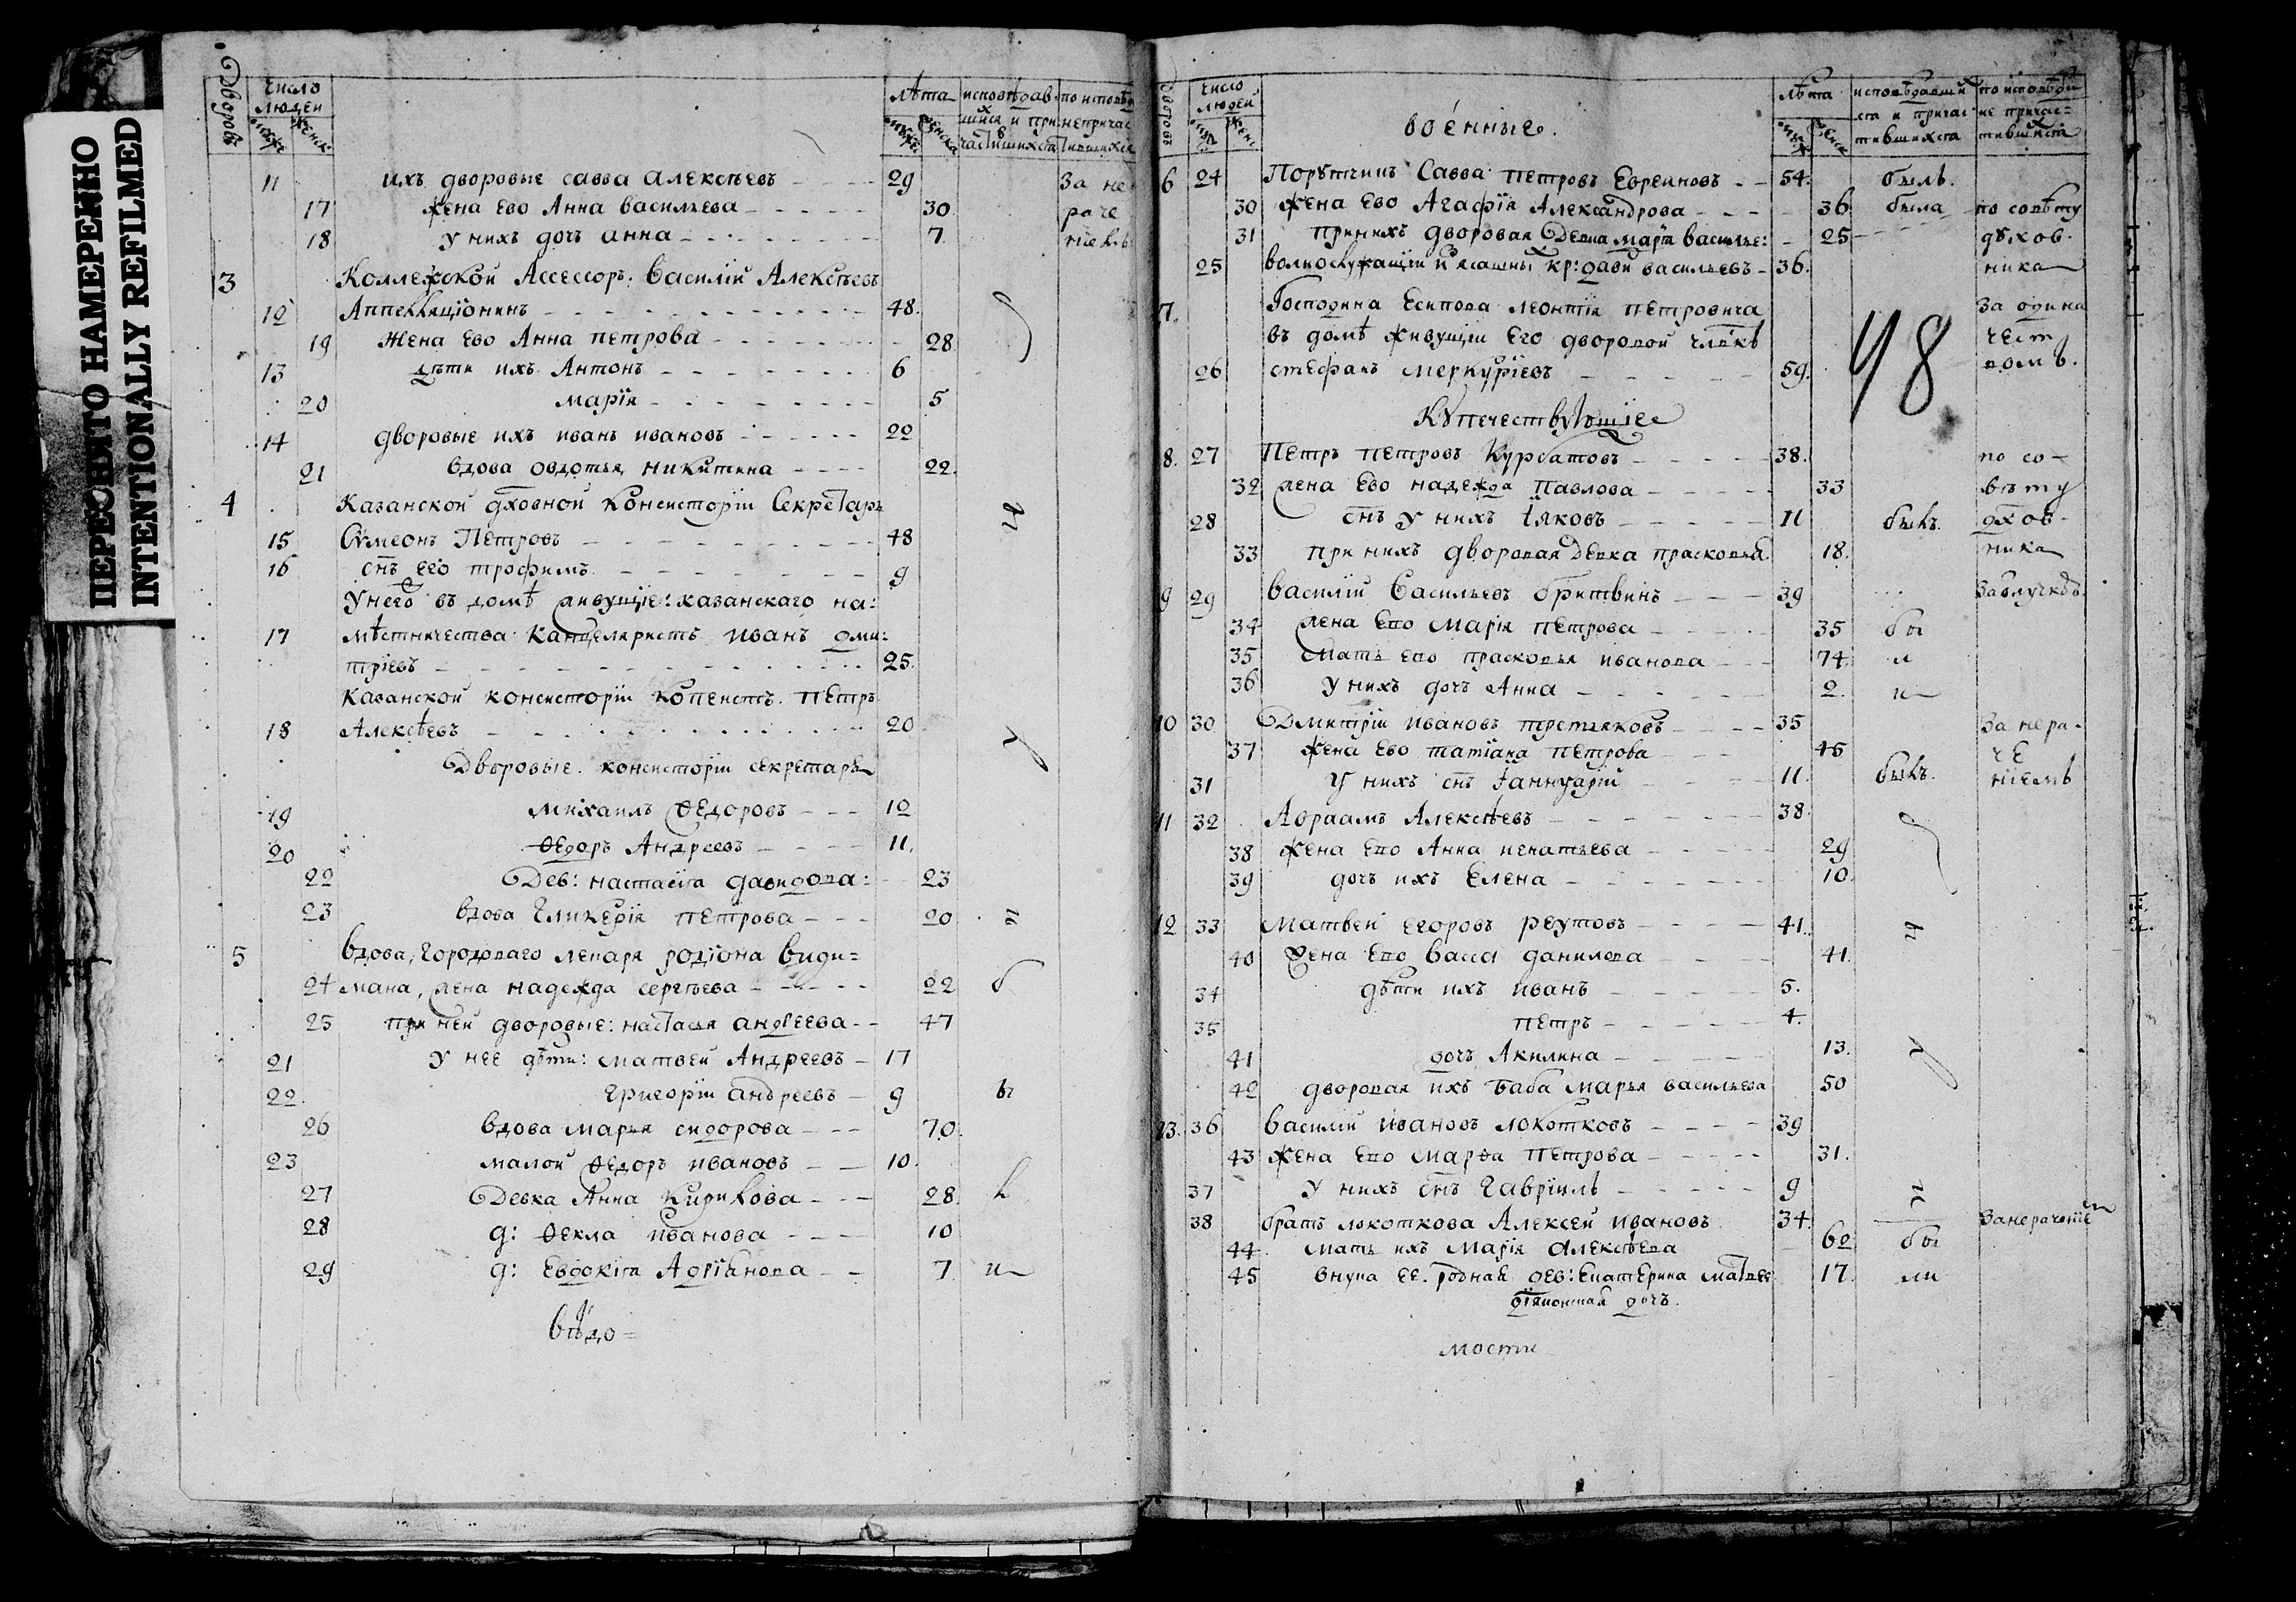 ПЕРЕСНЯТО НАМЕРЕННО
INTENTIONALLY REFILMED
Дворовъ
число людей
мужс женск
лѣта
мужс женска
исповѣдавшихся и причастившихся
по исповѣди непричастившихся
11 ихъ дворовые савва алексѣевъ 29 За не
17 жена ево Анна васильева 30 раче
18 у нихъ дочь анна 7 ниемъ
3 Коллежской Ассессоръ Василiй Алексѣевъ
12 Аппелляцiонинъ 48
19 жена ево Анна петрова 28
13 дѣти ихъ Антонъ 6
20 марiя 5
14 дворовые ихъ иванъ ивановъ 22
21 вдова овдотья никитина 22
4 Казанской дховной Консисторiи Секретарь
15 Сѵмеонъ Петровъ 48
16 снъ его трофимъ 9
У него въ домѣ живущiе: казанскаго на:
17 мѣстничества Канцеляристъ иванъ дми:
трiевъ 25
Казанской консисторiи копеистъ Петръ
18 Алексѣевъ 20
Дворовые консисторiи секретаря
19 михаилъ ѳедоровъ 12
20 ѳедоръ Андреевъ 11
22 Дев: настасiя давидова: 23
23 вдова Гликерiя петрова 20
5 вдова, городоваго лекаря родiона види=
24 мана, жена надежда сергѣева 22
25 при ней дворовые: настасья андреева 47
21 у нее дѣти: матвей Андреевъ 17
22 григорiй андреевъ 9
26 вдова марья сидорова 70
23 малой ѳедоръ ивановъ 10
27 Девка Анна Кирилова 28
28 д: ѳекла иванова 10
29 д: Евдокiя Адрiанова 7
вѣдо=
Дворовъ
число людей
муж женс
военные
лѣта
муж женск
исповѣдавшихся и причастившихся
по исповѣди не причастившихся
6 24 Порутчикъ Савва петровъ Евреиновъ 54 былъ
30 жена ево Агафiя Александрова 36 была по совѣту
31 при нихъ дворовая Девка марiя васильe: 25 духов
25 волнослужащiи ясашны кр: дави васильевъ 36 ника
7 Господина Есипова леонтiя петровича За одина
въ домѣ живущiи его дворовой члвкъ чест
26 стефанъ меркурiевъ 59 вомъ
48
Купечествующiе
8 27 Петръ петровъ Курбатовъ 38 по со
32 жена Ево надежда Павлова 33 вѣту
28 снъ у нихъ Iяковъ 11 былъ дхов
33 при нихъ дворовая Девка прасковья 18 ника
9 29 василiй Васильевъ бритвинъ 39
34 жена Ево марiя петрова 35 бы
35 мать ево прасковья иванова 74 л
36 у нихъ дочь Анна 2 и
10 30 Дмитрiи ивановъ третьяковъ 35 За нера
37 жена Ево татiана петрова 45 че
31 у нихъ снъ Iаннуарiй 11 былъ нiемъ
11 32 Авраамъ Алексѣевъ 38
38 жена ево Анна игнатьева 29
39 дочь ихъ Елена 10
12 33 матвей егоровъ реутовъ 41
40 жена ево васса данилова 41
34 дѣти ихъ иванъ 5
35 петръ 4
41 дочь Акилина 13
42 дворовая ихъ баба марья васильева 50
13 36 василiй ивановъ локотковъ 39
43 жена ево марѳа петрова 31
37 у нихъ снъ гаврiилъ 9
38 братъ локоткова Алексей ивановъ 34 За нерачение
44 мать ихъ марiя алексѣева 60 бы
45 внука ее родная дев: екатерина матвее 17 ли
дочь
мости